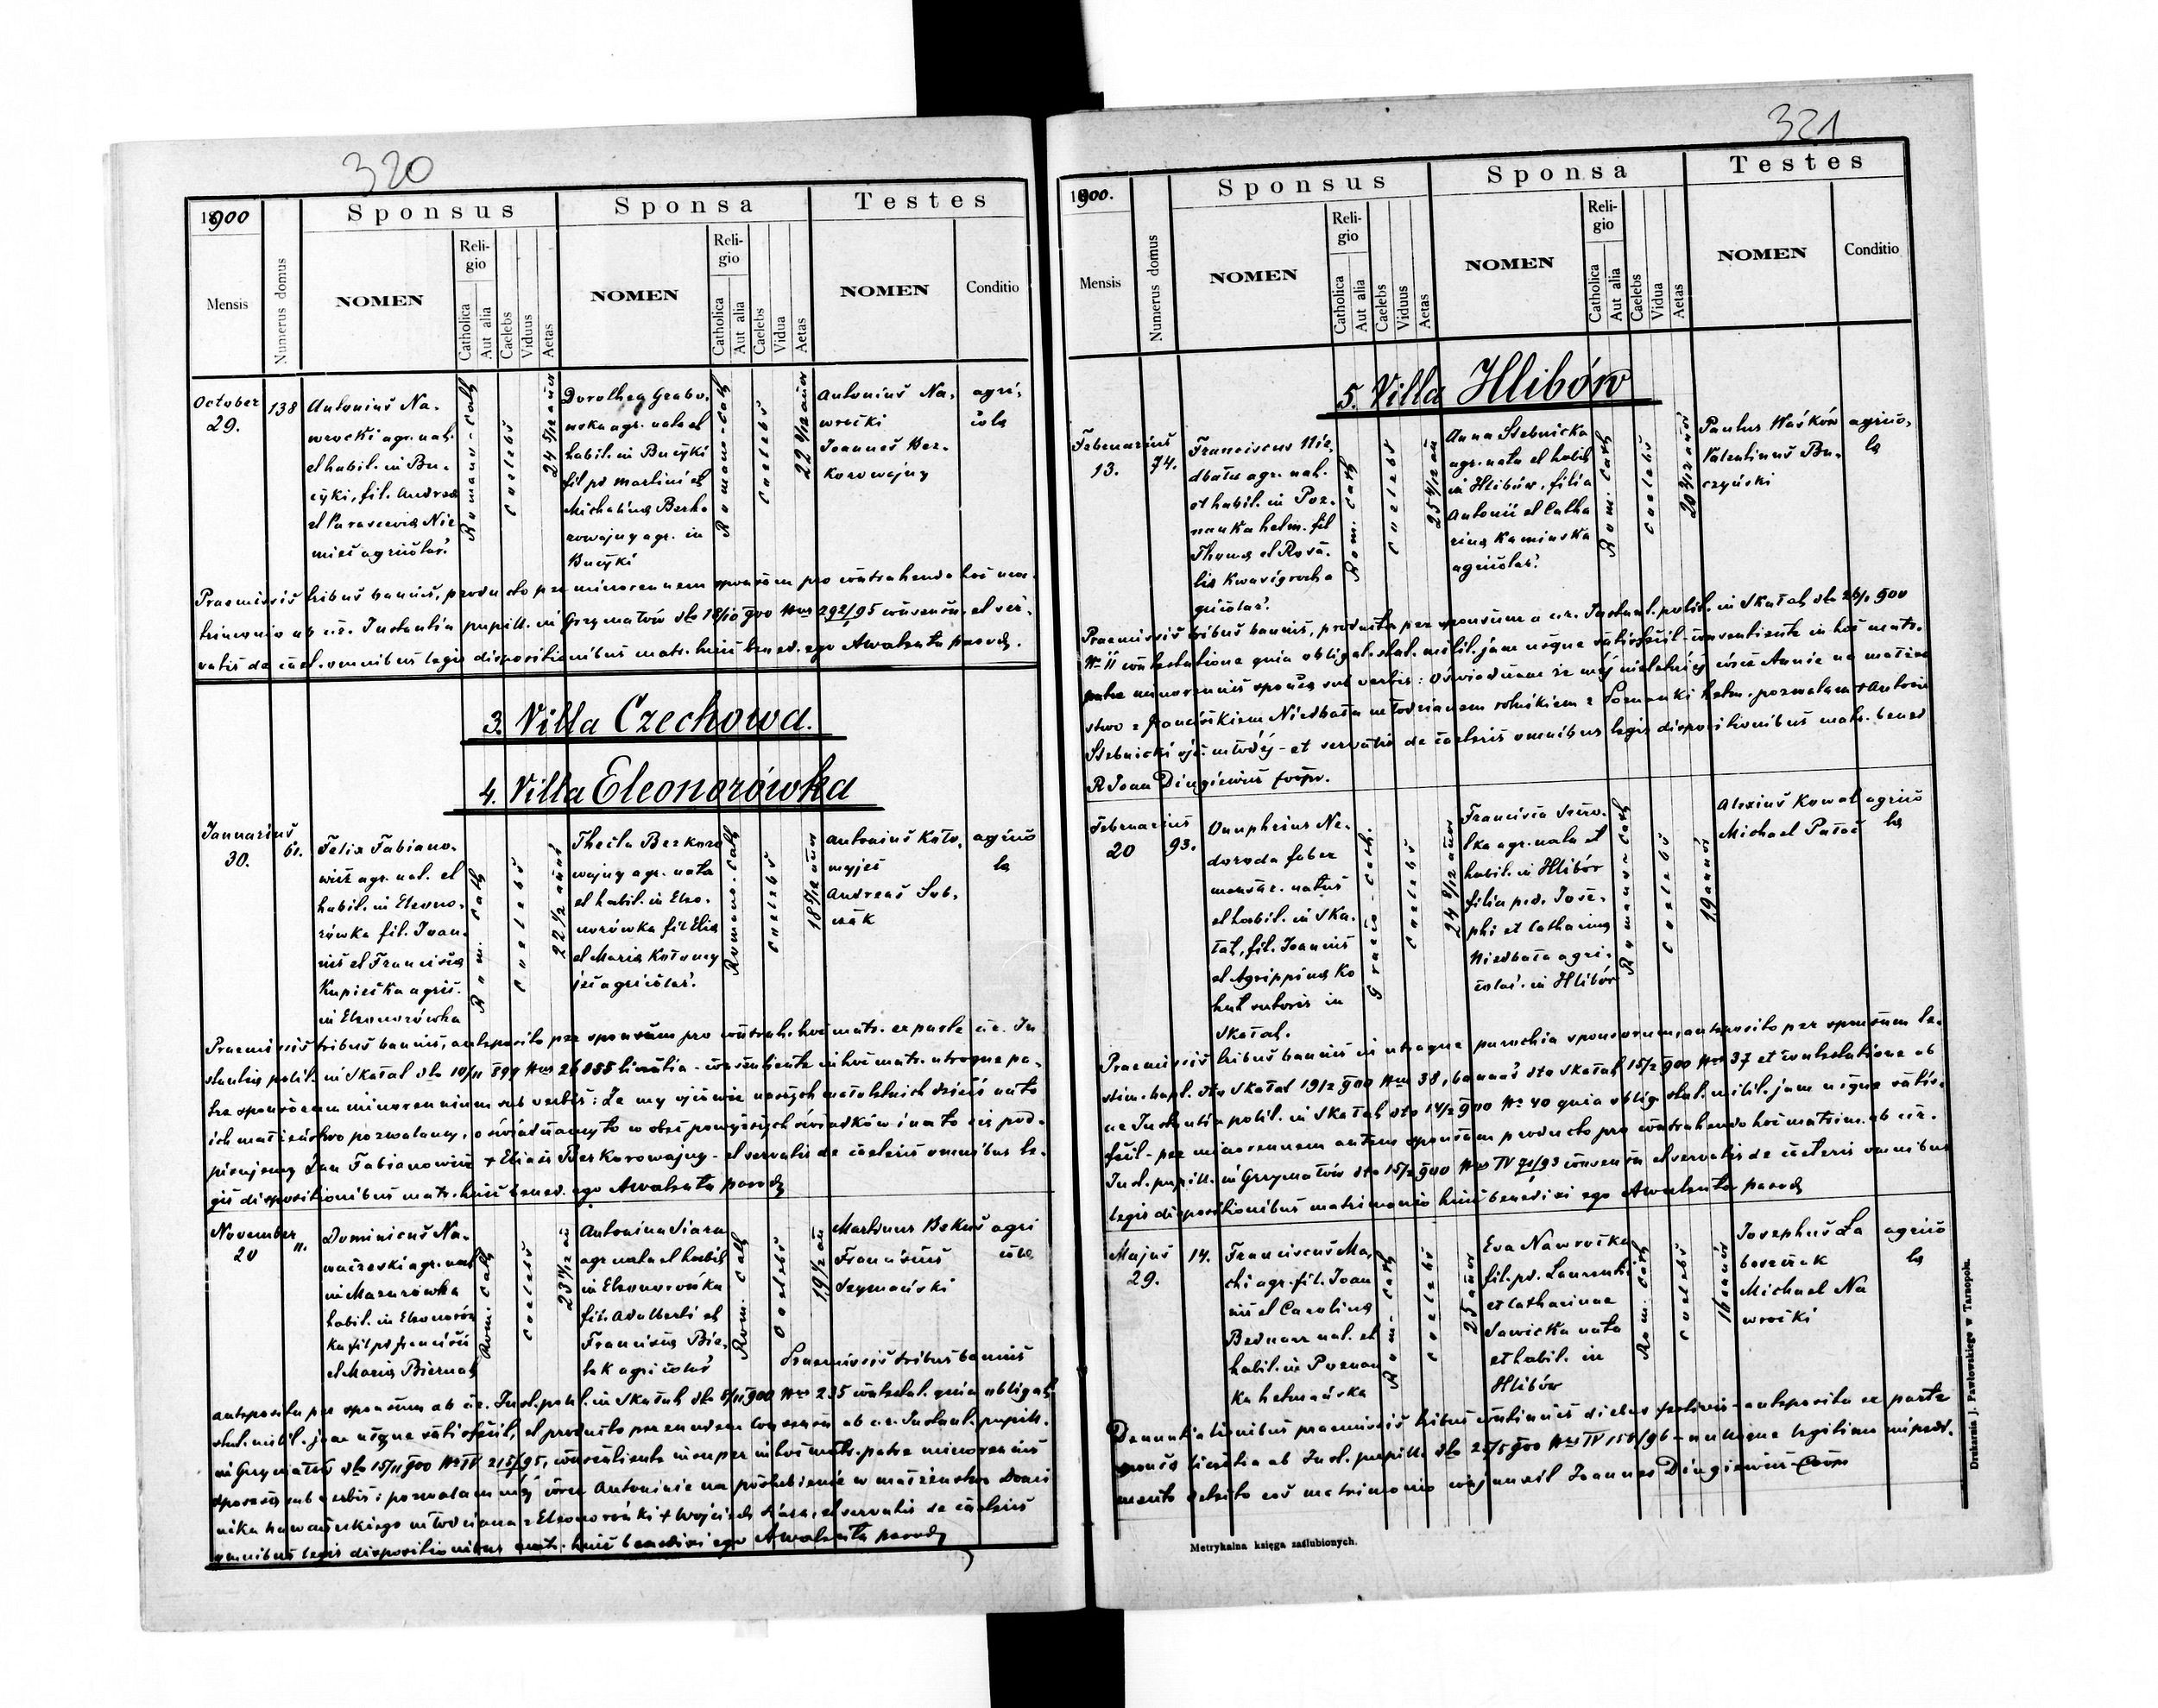 320
1900
Mensis
Numerus domus
Sponsus
NOMEN
Reli-
gio
Catholica
Aut alia
Caelebs
Viduus
Aetas
Sponsa
NOMEN
Reli-
gio
Catholica
Aut alia
Caelebs
Vidua
Aetas
Testes
NOMEN
Conditio
October
29.
138
Antonius Na-
wrocki agr. nat.
et habit. in Bu-
cyki, fil. Andreae
et Parascevia Nie
miec agricolar.
Romano-cath
Caelebs
24 5/12 annor
Dorothea Grabo-
wska agr. nata et
habit. in Bucyki
fil pd Martini et
Michalina Berko-
rowajny agr. in
Bucyki
Romano-cath
Caelebs
Antonius Na-
wrocki
Joannes Ber-
korowajny
agri-
cola
Praemissis tribus bannis, producto per minorennem sponsam pro contrahendo hoc ma-
trimonio ab c.r. Instantia pupill. in Grzymałów dto 18/10 900 Nrus 292/95 consensu, et ser-
vatis de cael. omnibus legis dispositionibus matr. huic bened. ego
3. Villa Czechowa.
4. Villa Eleonorówka
Januarius
30.
61.
Felix Fabiano-
wicz agr. nat. et
habit. in Eleono-
rówka fil. Joan-
nis et Francisca
Kupiecka agric.
in Eleonorówka
Rom. cath
Caelebs
22 1/2 annor
Thecla Berkoro
wajny agr. nata
et habit. in Eleo-
norówka fil Elia
et Maria Kołomy
jec agricolar.
Romano-cath
Caelebs
Antonius Koło-
myjec
Andreas Sob-
czak
agrico
la
Praemissis tribus bannis, anteposito per sponsum pro contrah. hoc matr. ex parte c.r. In-
stantia polit. in Skałat dto 10/11 899 Nrus 26055 licentia - consentiente in hoc matr. utroque pa-
tre sponsorum minorennium sub verbis: Że my ojcowie naszych małoletnich dzieci na to
ich małżeństwo pozwalamy, oświadczamy to w obec powyższych świadków i na to się pod-
pisujemy Jan Fabianowicz + Eliasz Berkorowajny - et servatis de caeteris omnibus le-
gis dispositionibus matr. huic bened. ego
November
20
11.
Dominicus Na-
waczeski agr. nat
in Mazurówka
habit. in Eleonorów
ka fil pd Francisci
et Maria Biernat
Rom. cath
Caelebs
23
Antonina Siara
agr nata et habit
in Eleonorówka
fil. Adalberti et
Francisca Bie-
lak agricolar
Rom. cath
Caelebs
19 1/2
Martinus Bekus
Franciscus
Szymański
agri
cola
Praemissis tribus bannis
anteposita per sponsum ab c.r. Inst. polit. in Skałat dto 8/11 900 Nrus 235 contestat. quia obligat.
stat. milit. jam usque satisfecit, et producto per eundem consensu ab c.r. Instant. pupill.
in Grzymałów dto 15/11 900 Nr IV 215/95, consentiente insuper in hoc matr. patre minorennis
sponsae sub verbis: pozwalam mej córce Antoninie na poślubienie w małżeństwo Domi
nika młodziana z Eleonorówki + Wojciech Siara, et servatis de caeteris
omnibus legis dispositionibus matr. huic benedixi ego
321
1900.
Mensis
Numerus domus
Sponsus
NOMEN
Reli-
gio
Catholica
Aut alia
Caelebs
Viduus
Aetas
Sponsa
NOMEN
Reli-
gio
Catholica
Aut alia
Caelebs
Vidua
Aetas
Testes
NOMEN
Conditio
5. Villa Hlibów
Februarius
13.
74.
Franciscus Nie
dbała agr. nat.
et habit. in Poz-
nanka hetm. fil
Thoma et Rosa-
lia Kwasigroch a
gricolar.
Rom. cath
Caelebs
Anna Stebnicka
agr. nata et habit
in Hlibów, filia
Antonii et Catha
rina Kaminska
agricolar.
Rom. cath
Caelebs
Paulus Waśków
Valentinus Bu-
czyński
agrico-
la
Praemissis tribus bannis, producta per sponsum a c.r. Instant. polit. in Skałat dto 26/1 900
Nr 11 contestatione quia obligat. stat. milit. jam usque satisfecit - consentiente in hoc matr.
patre minorennis sponsa sub verbis: oświadczam że mej nieletniéj córce Annie na małżeń
stwo z Franciszkiem Niedbała młodzianem rolnikiem z Poznanki hetm. pozwalam + Antoni
Stebnicki ojciec młodej - et servatis de caeteris omnibus legis dispositionibus matr. bened
R Joan Dingiewicz coop.
Februarius
20
93.
Onuphrius Ne-
doroda faber
natus
et habit. in Ska-
łat, fil. Joannis
et Agrippina Ko
hut sutoris in
Skałat.
Graeco-cath.
Caelebs
Francisca Szero-
cka agr. nata et
habit. in Hlibów
filia pd. Jose-
phi et Catharina
Niedbała agri-
colar. in Hlibów
Romano-cath
Caelebs
19 annor
Alexius Kowal
Michael Pałac
agrico
la
Praemissis tribus bannis in utraque parochia sponsorum, anteposito per sponsum te-
stim. bapt. dto Skałat 19/2 900 Nrum 38, bannor dto Skałat 15/2 900 Nrus 37 et contestatione ab
Instantia polit. in Skałat dto 14/2 900 Nr 40 quia oblig. stat. milit. jam usque satis-
fecit - per minorennem autem sponsam producto pro contrahendo hoc matrim. ab c.r.
Inst. pupill. in Grzymałów dto 15/2 900 Nrus IV 70/93 consensu et servatis de caeteris omnibus
legis dispositionibus matrimonio huic benedixi ego
Majus
29.
14.
Franciscus Ma-
chi agr. fil. Joan
nis et Carolina
Bednarz nat. et
habit. in Poznan
ka hetmańska
Rom-cath
Caelebs
25 annor
Eva Nawrocka
fil. pd. Laurentii
et Catharinae
Sawicka nata
et habit. in
Hlibów
Rom. cath
Caelebs
16 annor
Josephus La
boszczak
Michael Na
wrocki
agrico
la
Denuntiationibus praemissis tribus continuis diebus festivis - anteposita ex parte
sponsa licentia ab Inst. pupill. dto 25/5 900 Nrus IV 158/96 - nulloque legitimo impedi-
mento detecto eos matrimonio conjunxit Joannes Dingiewicz Coop
Metrykalna księga zaślubionych.
Drukarnia J. Pawłowskiego w Tarnopolu.